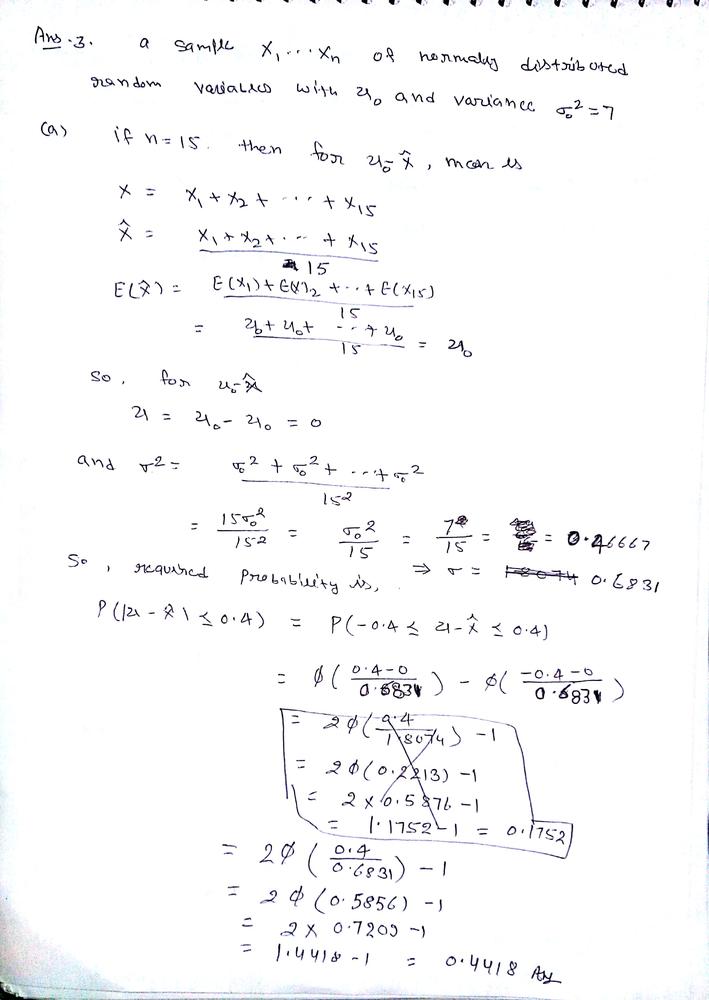 Ans.3. a sample X₁ ... Xn of normally distributed
random variables with μ₀ and variance σ₀² = 7
(a) if n = 15. then for μ₀ - X̂, mean is
X = X₁ + X₂ + ... + X15
X̂ = (X₁ + X₂ + ... + X15) / 15
E(X̂) = (E(X₁) + E(X)₂ + ... + E(X15)) / 15
= (μ₀ + μ₀ + ... + μ₀) / 15 = μ₀
So, for μ₀ - X̂
μ = μ₀ - μ₀ = 0
and σ² = (σ₀² + σ₀² + ... + σ₀²) / 15²
= 15σ₀² / 15² = σ₀² / 15 = 7 / 15 = 0.46667
⇒ σ = 0.6831
So, required probability is,
P(|μ - X̂| ≤ 0.4) = P(-0.4 ≤ μ - X̂ ≤ 0.4)
= φ((0.4 - 0) / 0.6831) - φ((-0.4 - 0) / 0.6831)
= 2φ(0.4 / 1.8074) - 1
= 2φ(0.2213) - 1
= 2 × 0.5876 - 1
= 1.1752 - 1 = 0.1752
= 2φ(0.4 / 0.6831) - 1
= 2φ(0.5856) - 1
= 2 × 0.7209 - 1
= 1.4418 - 1 = 0.4418 Ans